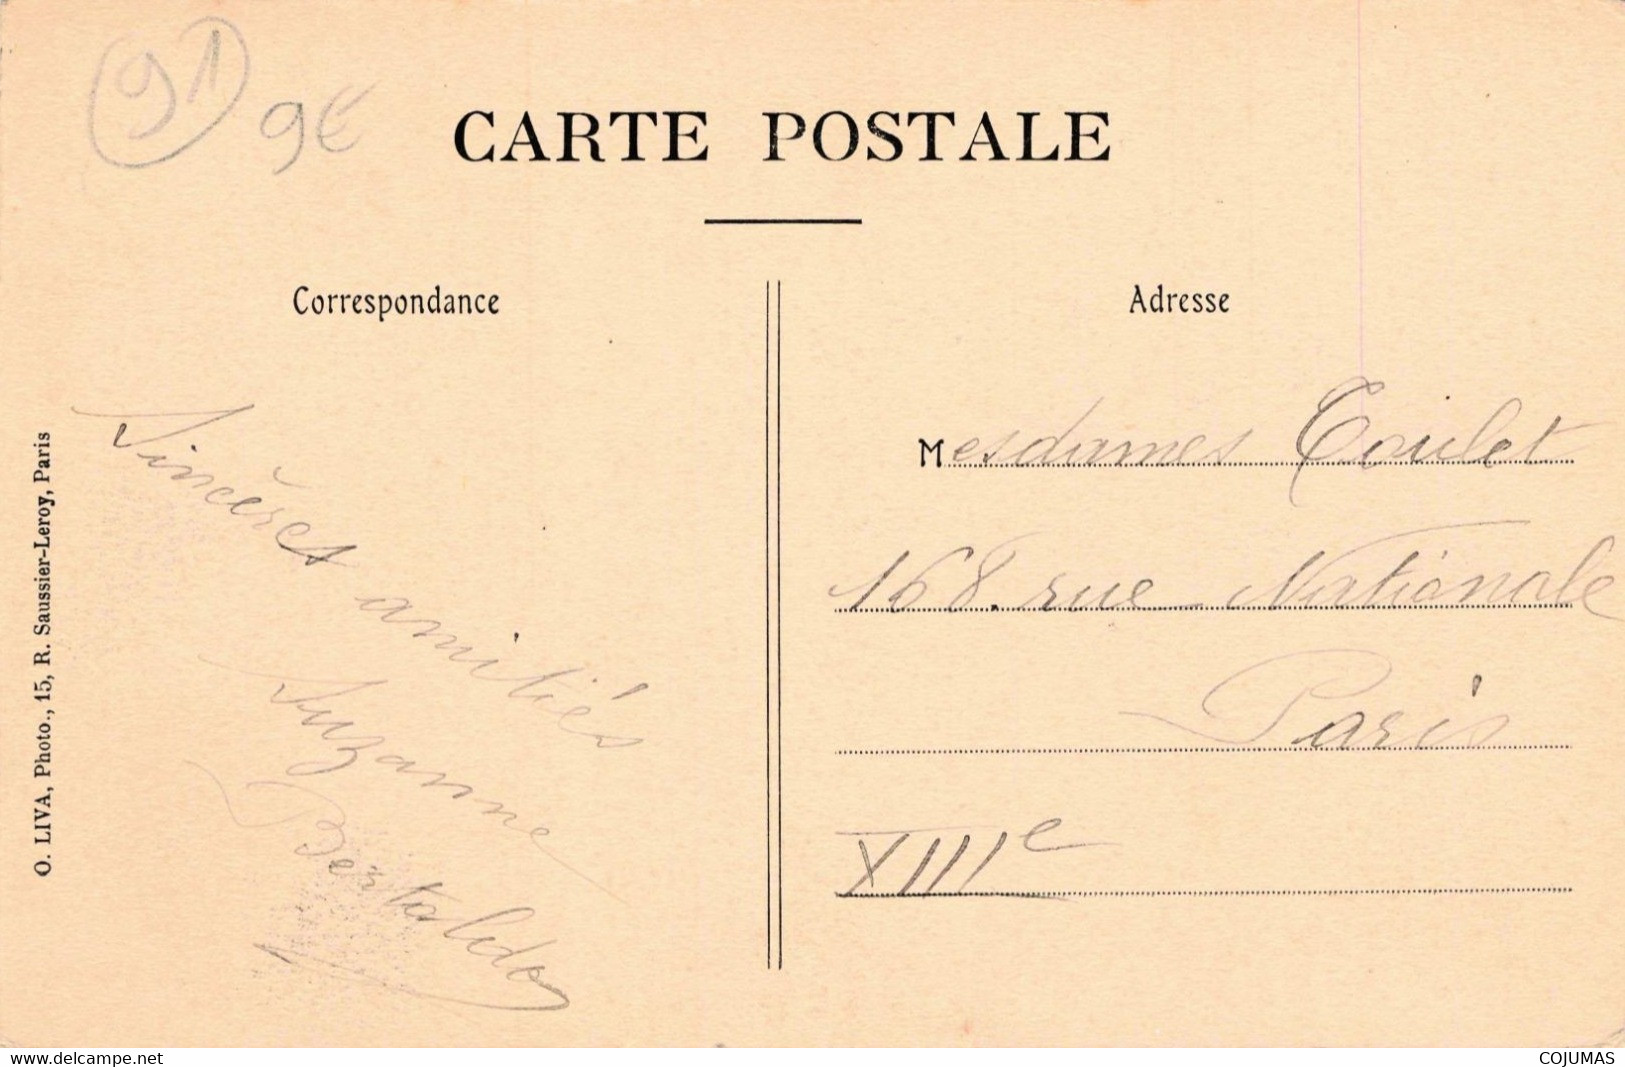 91 9€
CARTE POSTALE
Correspondance
Adresse
Sincères amitiés
Suzanne
Bertaldo
Mesdames Toulet
168. rue Nationale
Paris
XIIIe
O. LIVA, Photo., 15, R. Saussier-Leroy, Paris
www.delcampe.net
COJUMAS